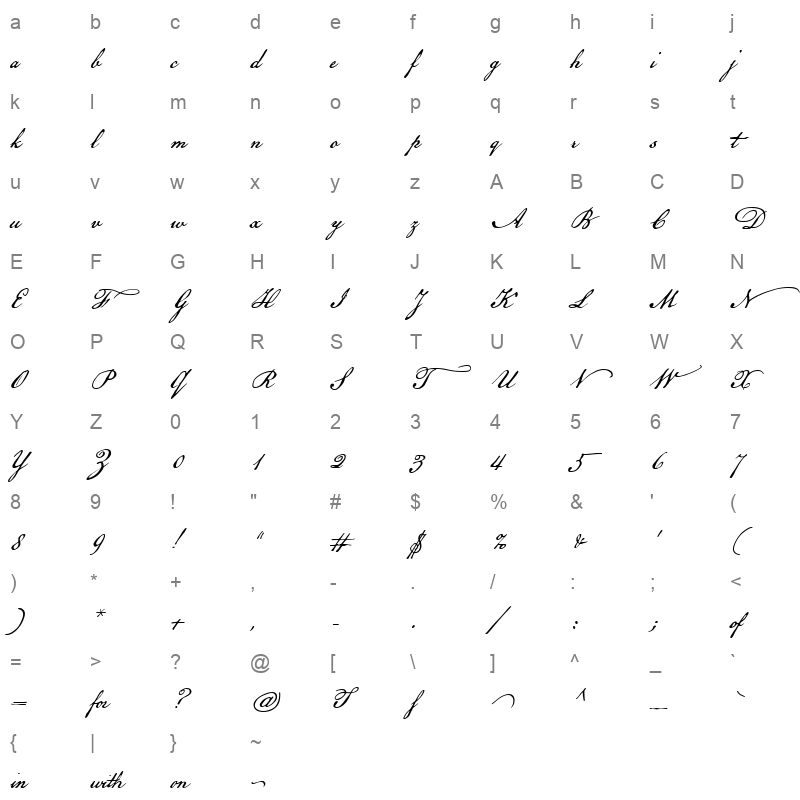 a b c d e f g h i j
a b c d e f g h i j
k l m n o p q r s t
k l m n o p q r s t
u v w x y z A B C D
u v w x y z A B C D
E F G H I J K L M N
E F G H I J K L M N
O P Q R S T U V W X
O P Q R S T U V W X
Y Z 0 1 2 3 4 5 6 7
Y Z 0 1 2 3 4 5 6 7
8 9 ! " # $ % & ' (
8 9 ! " # $ % & ' (
) * + , - . / : ; <
) * + , - . / : ; of
= > ? @ [ \ ] ^ _ `
= for ? @ T f ^ _ `
{ | } ~
in with on ¬